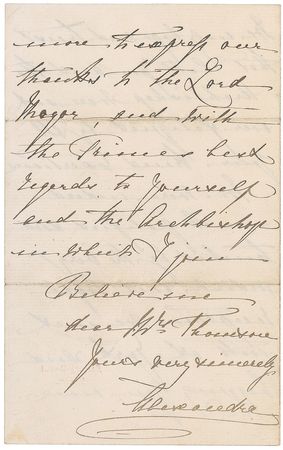 more to express our
thanks to the Lord
Mayor, and with
the Princes best
regards to yourself
and the Archbishop
in which I join
Believe me
dear Mrs Thomson
Yours very sincerely
Alexandra